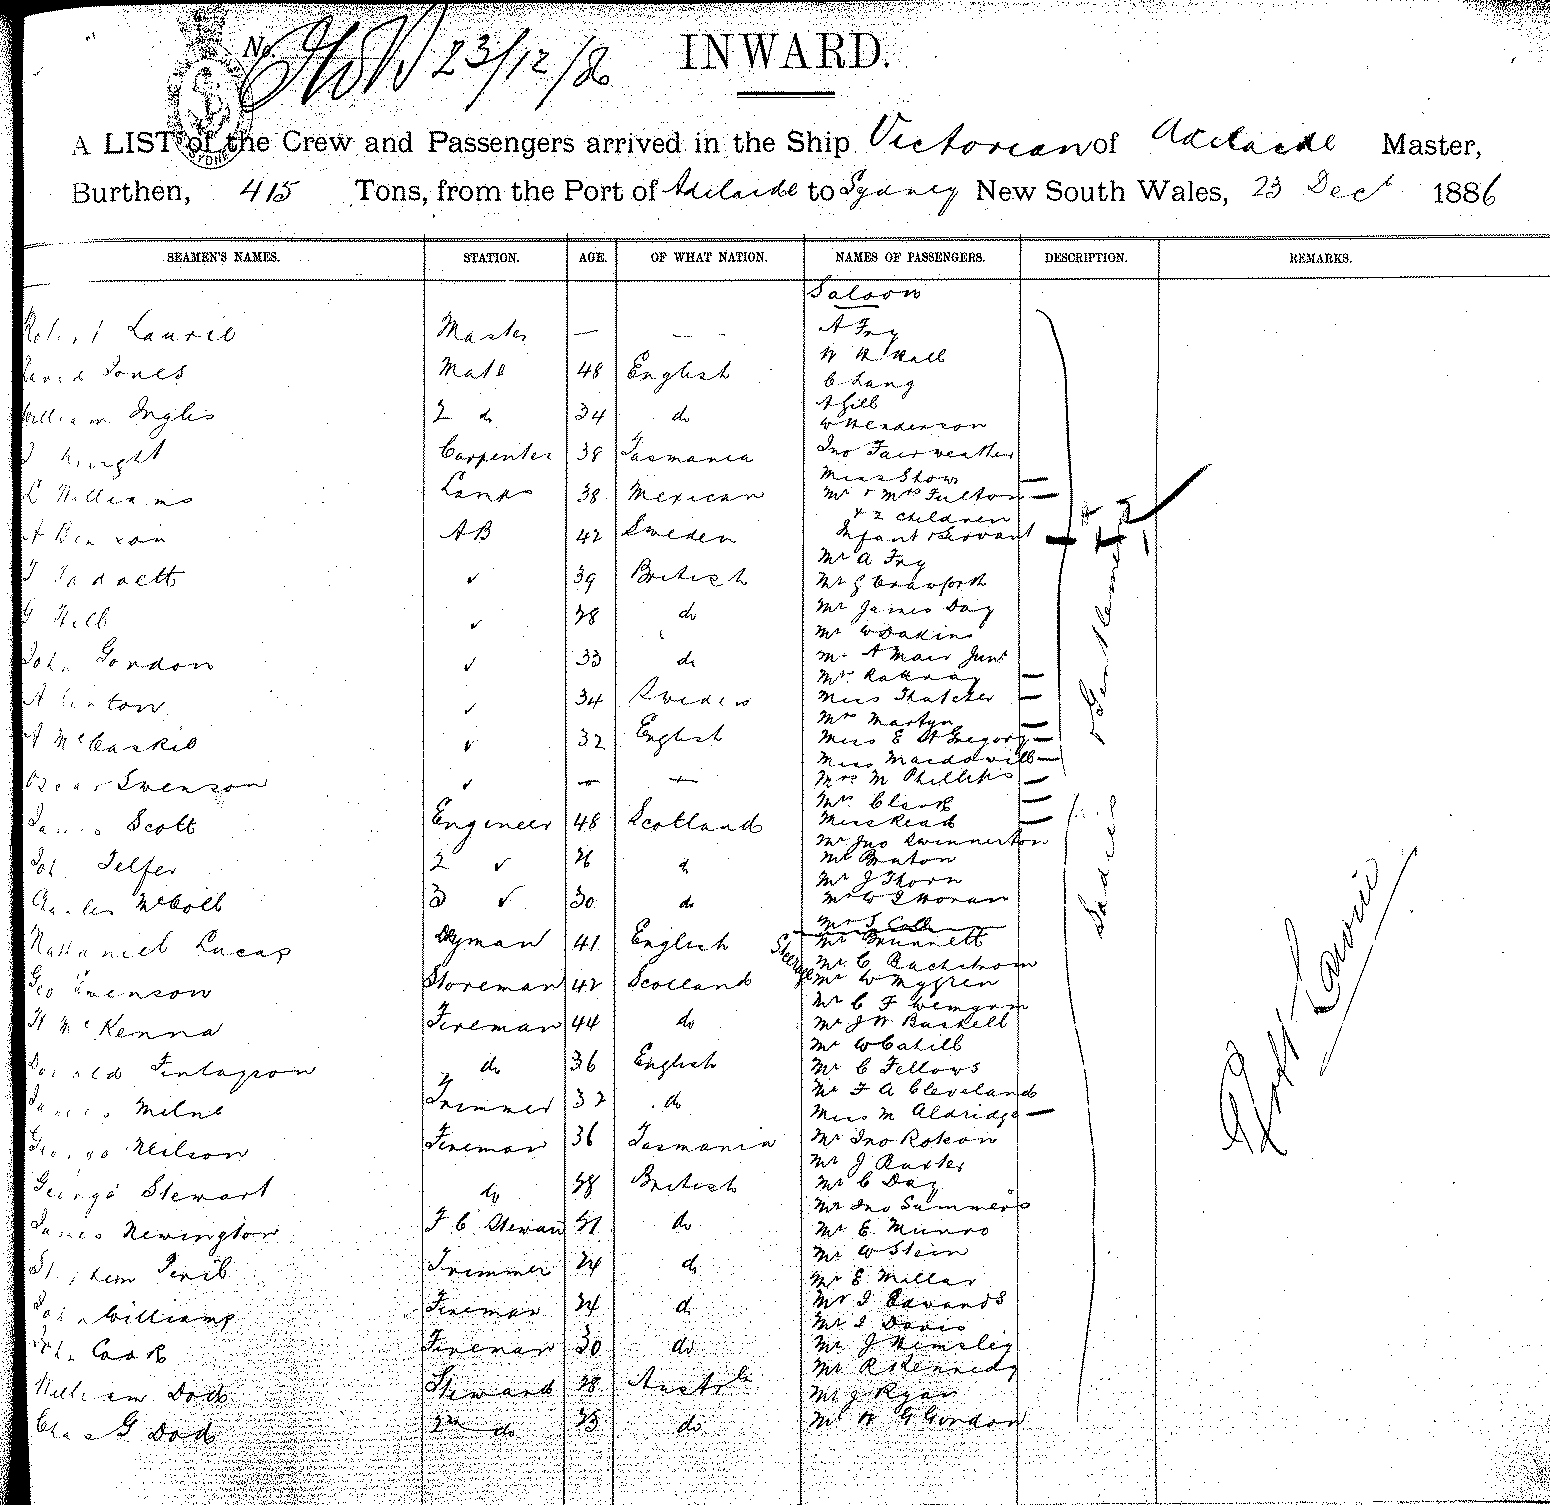 No.
23/12/86
INWARD.
A LIST of the Crew and Passengers arrived in the Ship Victorian of Adelaide Master,
Burthen, 415 Tons, from the Port of Adelaide to Sydney New South Wales, 23 Dec 1886
SEAMEN'S NAMES. STATION. AGE. OF WHAT NATION. NAMES OF PASSENGERS. DESCRIPTION. REMARKS.
Saloon
Robert Laurie Master — —
A Fry
W H Hall
David Jones Mate 48 English
C Lang
William Inglis 2 do 34 do
A Gill
W Henderson
Wright Carpenter 38 Tasmania
Jno Fairweather
Miss Show
Williams Lamps 38 Mexican
Mr & Mrs Fulton
& 2 children
A AB 42 Sweden
Infant & Servant
Mr A Fry
39 British
Mr Crawforth
G 28 do
Mr James Day
Mr W Dakins
John Gordon 33 do
Mr A Mair Junr
Mrs
A 34 Sweden
Miss Thatcher
Mrs Martyn
A McCaskil 32 English
Miss E A Gregory
Miss
Oscar Swenson — —
Mrs M Phillips
Mrs Clark
James Scott Engineer 48 Scotland
Miss Read
Mr Jno Swinnerton
John Telfer 2 26 do
Mr Bruton
Mr J Thorn
Charles McColl 3 30 do
Mr W J Horan
Nathaniel Lucas 41 English
Steerage
Mr Brunnett
Mr C Bachstrom
Geo Swenson Storeman 42 Scotland
Mr W Mygren
Mr C F
H McKenna Fireman 44 do
Mr J W Baskell
Mr W Cahill
Donald do 36 English
Mr C Fellows
Mr F A Cleveland
James Milne Trimmer 32 do
Miss M Aldridge
George Neilson Fireman 36 Tasmania
Mr Jno
Mr J
George Stewart do 28 British
Mr C Day
Mr Jno Summers
James Newington F C Steward 21 do
Mr E Munro
Mr W Stein
Trimmer 24 do
Mr E Millar
John Williams Fireman 24 do
Mr J Edwards
Mr J Davis
John Cook Fireman 30 do
Mr J Hemsley
Mr R Kennedy
William Dod Steward 28
Mr J Ryan
Chas G Dod 2nd do 23 do
Mr W G Gordon
Gentlemen
Ladies
Robt Laurie